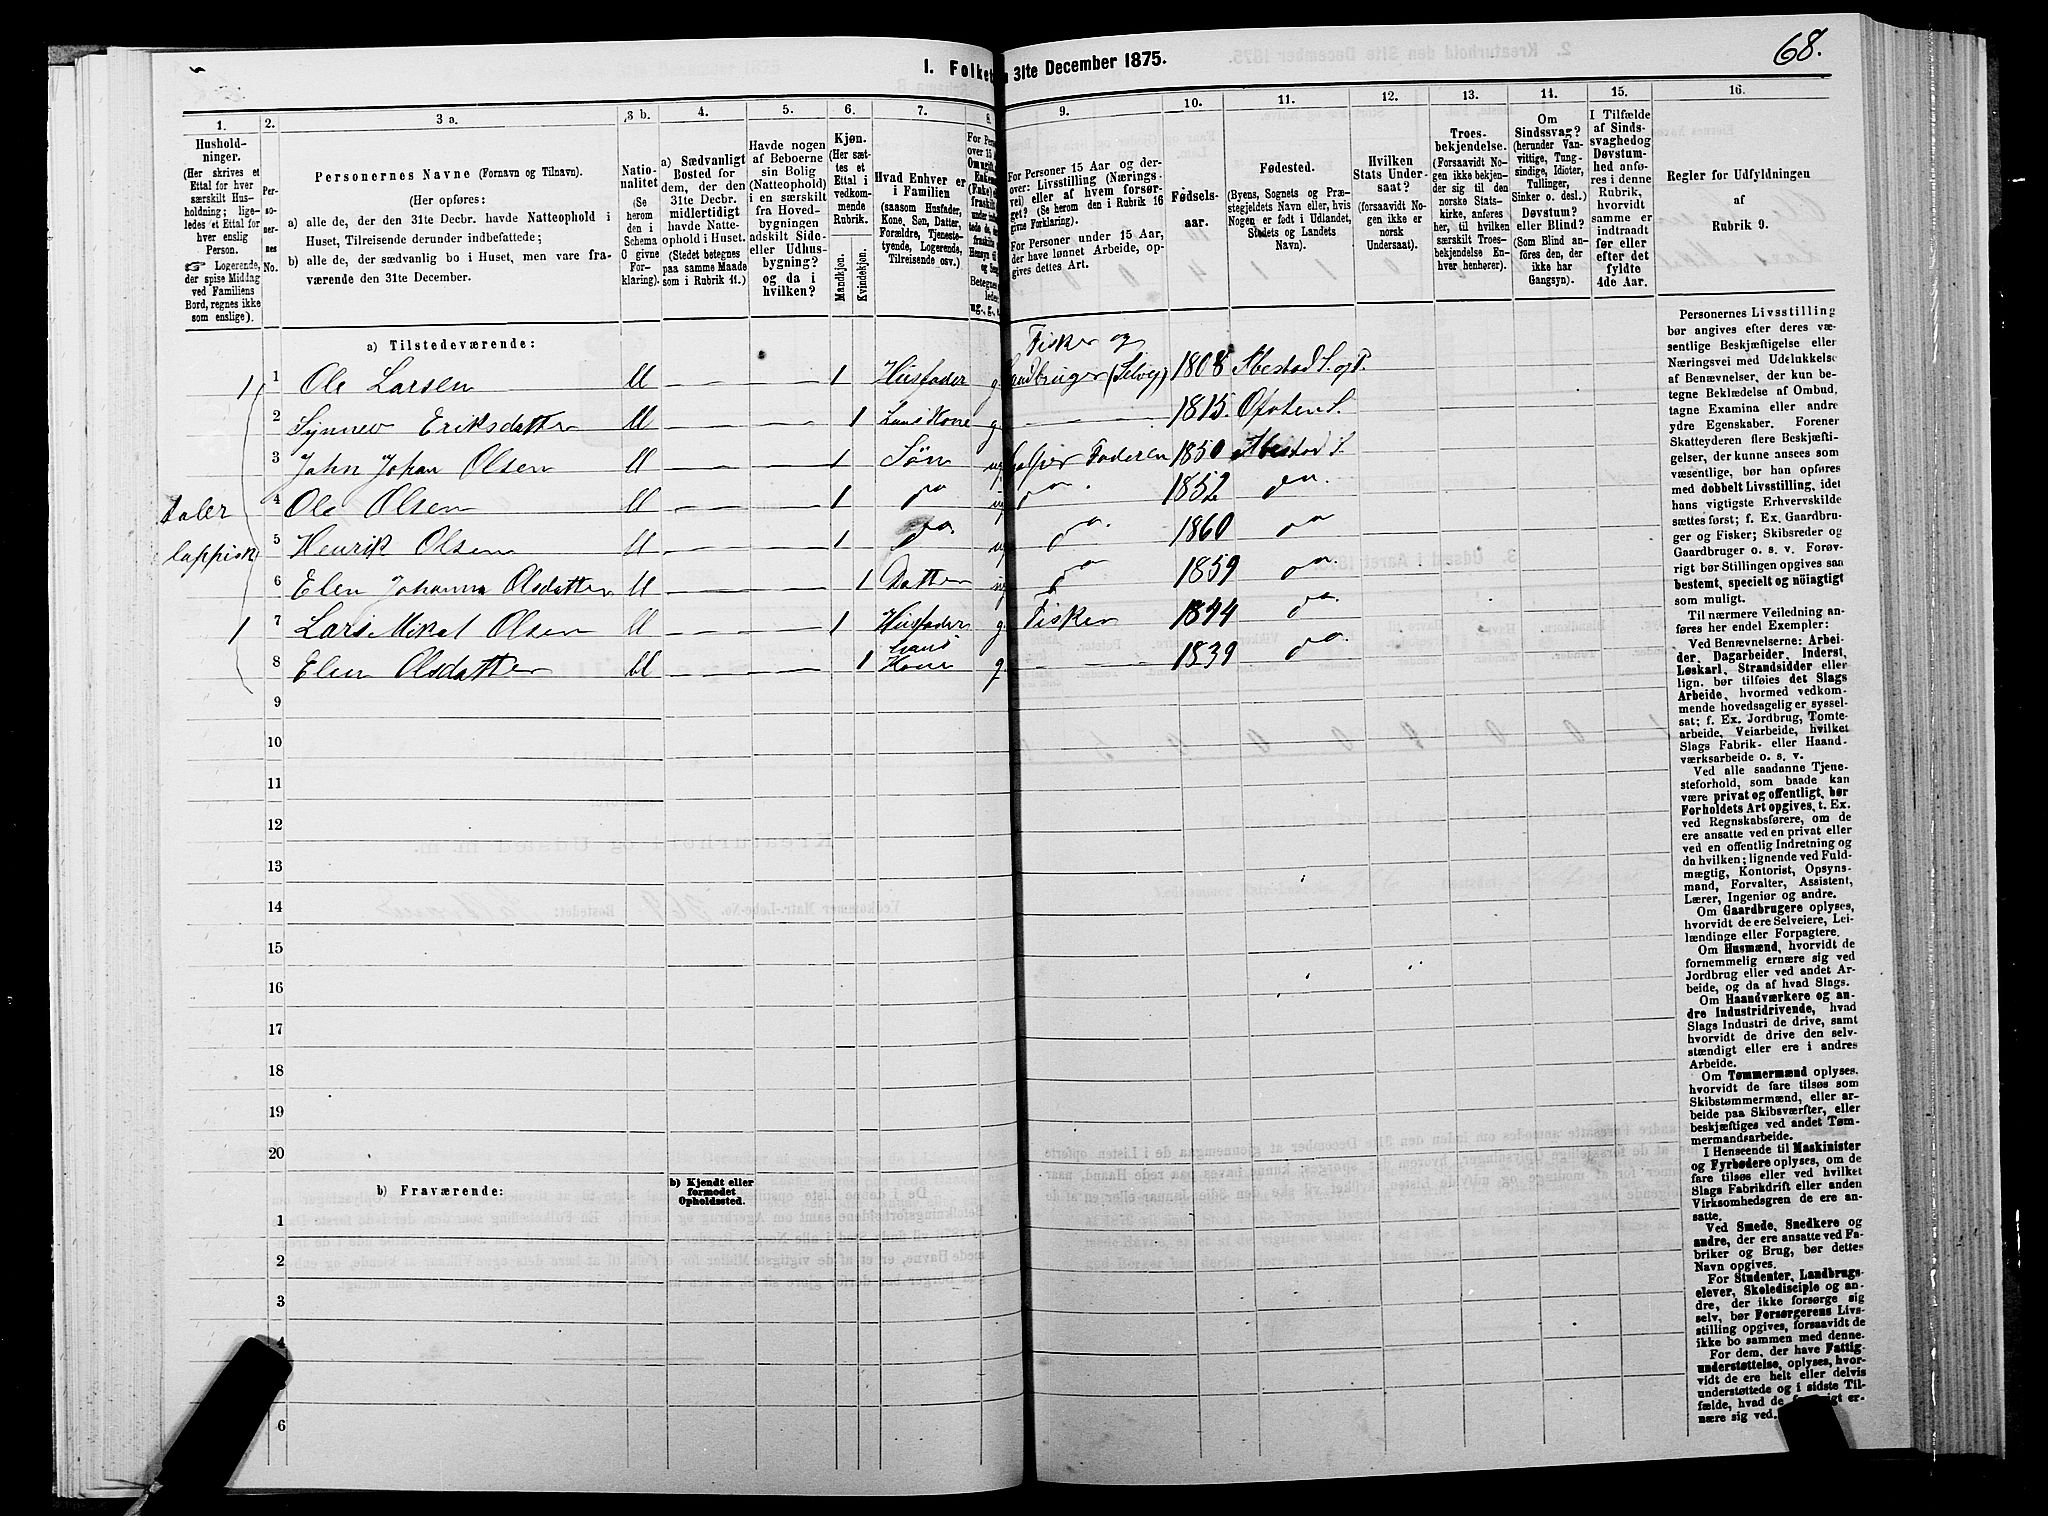 68.
1. Folket
31te December 1875.
1. 2. 3 a. 3 b. 4. 5. 6. 7. 8. 9. 10. 11. 12. 13. 14. 15. 16.
Hushold-
ninger.
(Her skrives et
Ettal for hver
særskilt Hus-
holdning; lige-
ledes et Ettal for
hver enslig
Person.
☞ Logerende,
der spise Middag
ved Familiens
Bord, regnes ikke
som enslige).
Per-
so-
ner-
nes
No.
Personernes Navne (Fornavn og Tilnavn).
(Her opføres:
a) alle de, der den 31te Decbr. havde Natteophold i
Huset, Tilreisende derunder indbefattede;
b) alle de, der sædvanlig bo i Huset, men vare fra-
værende den 31te December.
Natio-
nalitet
(Se
herom
den i
Schema
O givne
For-
klaring).
a) Sædvanligt
Bosted for
dem, der den
31te Decbr.
midlertidigt
havde Natte-
ophold i Huset.
(Stedet betegnes
paa samme Maade
som i Rubrik 11.)
Havde nogen
af Beboerne
sin Bolig
(Natteophold)
i en særskilt
fra Hoved-
bygningen
adskilt Side-
eller Udhus-
bygning?
og da i
hvilken?
Kjøn.
(Her sæt-
tes et
Ettal i
vedkom-
mende
Rubrik.
Mandkjøn.
Kvindekjøn.
Hvad Enhver er
i Familien
(saasom Husfader,
Kone, Søn, Datter,
Forældre, Tjeneste-
tyende, Logerende,
Tilreisende osv.)
For Personer 15 Aar og der-
over: Livsstilling (Nærings-
vei) eller af hvem forsør-
get? (Se herom den i Rubrik 16
givne Forklaring).
For Personer under 15 Aar,
der have lønnet Arbeide, op-
gives dettes Art.
Fødsels-
aar.
Fødested.
(Byens, Sognets og Præ-
stegjeldets Navn eller, hvis
Nogen er født i Udlandet,
Stedets og Landets
Navn).
Hvilken
Stats Under-
saat?
(forsaavidt No-
gen ikke er
norsk
Undersaat).
Troes-
bekjendelse.
(Forsaavidt No-
gen ikke bekjen-
der sig til den
norske Stats-
kirke, anføres
her, til hvilken
særskilt Troes-
bekjendelse En-
hver henhører).
Om
Sindssvag?
(herunder Van-
vittige, Tung-
sindige, Idioter,
Tullinger,
Sinker o. desl.)
Døvstum?
eller Blind?
(Som Blind an-
føres den, der
ikke har
Gangsyn).
I Tilfælde
af Sinds-
svaghedog
Døvstum-
hed anfø-
res i denne
Rubrik,
hvorvidt
samme er
indtraadt
før eller
efter det
fyldte
4de Aar.
Regler for Udfyldningen
af
Rubrik 9.
a) Tilstedeværende:
Fisker og
1 1 Ole Larsen U 1 Husfader g. Landbruger (Selvej) 1808 Ibestad S. og P.
2 Synnev Eriksdatter U 1 Hans Kone g. 1815 Ofoten S.
3 John Johan Olsen U 1 Søn ug. hjelper Faderen 1850 Ibestad S.
4 Ole Olsen U 1 do ug. do. 1852 do.
taler
5 Henrik Olsen U 1 do. ug. do. 1860 do
lappisk
6 Elen Johanna Olsdatter U 1 Datter ug. do 1859 do.
1 7 Lars Mikal Olsen U 1 Husfader g. Fisker 1844 do.
8 Elen Olsdatter U 1 hans Kone g. 1839 do.
9
10
11
12
13
14
15
16
17
18
19
20
b) Fraværende:
b) Kjendt eller
formodet
Opholdssted.
1
2
3
4
6
Personernes Livsstilling
bør angives efter deres væ-
sentlige Beskjæftigelse eller
Næringsvei med Udelukkelse
af Benævnelser, der kun be-
tegne Beklædelse af Ombud,
tagne Examina eller andre
ydre Egenskaber. Forener
Skatteyderen flere Beskjæfti-
gelser, der kunne ansees som
væsentlige, bør han opføres
med dobbelt Livsstilling, idet
hans vigtigste Erhvervskilde
sættes først; f. Ex. Gaardbru-
ger og Fisker; Skibsreder og
Gaardbruger o. s. v. Forøv-
rigt bør Stillingen opgives saa
bestemt, specielt og nöiagtigt
som muligt.
Til nærmere Veiledning an-
føres her endel Exempler:
Ved Benævnelserne: Arbei-
der, Dagarbeider, Inderst,
Løskarl, Strandsidder eller
lign. bør tilføies det Slags
Arbeide, hvormed vedkom-
mende hovedsagelig er syssel-
sat; f. Ex. Jordbrug, Tomte-
arbeide, Veiarbeide, hvilket
Slags Fabrik- eller Haand-
værksarbeide o. s. v.
Ved alle saadanne Tjene-
steforhold, som baade kan
være privat og offentligt, bør
Forholdets Art opgives, t. Ex.
ved Regnskabsførere, om de
ere ansatte ved en privat eller
ved en offentlig Indretning og
da hvilken; lignende ved Fuld-
mægtig, Kontorist, Opsyns-
mand, Forvalter, Assistent,
Lærer, Ingeniør og andre.
Om Gaardbrugere oplyses,
hvorvidt de ere Selveiere, Lei-
lændinge eller Forpagtere.
Om Husmænd, hvorvidt de
fornemmelig ernære sig ved
Jordbrug eller ved andet Ar-
beide, og da af hvad Slags.
Om Haandværkere og an-
dre Industridrivende, hvad
Slags Industri de drive, samt
hvorvidt de drive den selv-
stændigt eller ere i andres
Arbeide.
Om Tømmermænd oplyses,
hvorvidt de fare tilsøs som
Skibstømmermænd, eller ar-
beide paa Skibsværfter, eller
beskjæftiges ved andet Tøm-
mermandsarbeide.
I Henseende til Maskinister
og Fyrbødere oplyses, om de
fare tilsøs eller ved hvilket
Slags Fabrikdrift eller anden
Virksomhedsgren de ere an-
satte.
Ved Smede, Snedkere og
andre, der ere ansatte ved Fa-
briker og Brug, bør dettes
Navn opgives.
For Studenter, Landbrugs-
elever, Skoledisciple og an-
dre, der ikke forsørge sig
selv, bør Forsørgerens Livs-
stilling opgives, forsaavidt de
ikke bo sammen med denne.
For dem, der have Fattig-
understøttelse, oplyses, hvor-
vidt de ere helt eller delvis
understøttede og i sidste Til-
fælde, hvad de forøvrigt er-
nære sig ved.